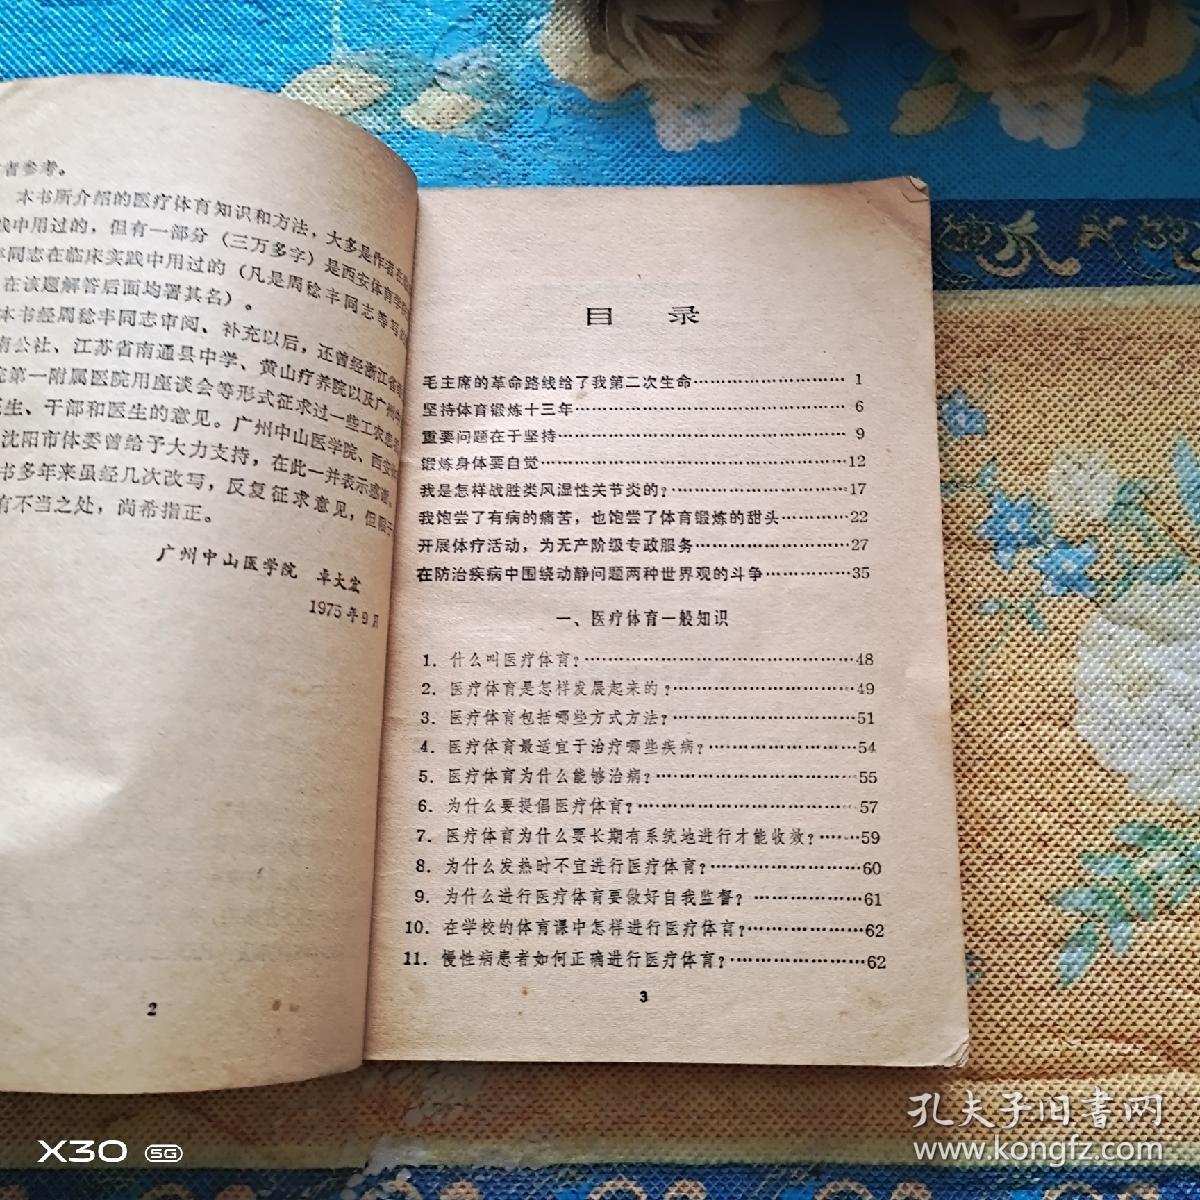 者参考。
本书所介绍的医疗体育知识和方法，大多是作者在
践中用过的，但有一部分（三万多字）是西安体育学
丰同志在临床实践中用过的（凡是周稔丰同志等写
在该题解答后面均署其名）。
本书经周稔丰同志审阅、补充以后，还曾经浙江省
南公社、江苏省南通县中学、黄山疗养院以及广州中
院第一附属医院用座谈会等形式征求过一些工农患者
医生、干部和医生的意见。广州中山医学院、西安
沈阳市体委曾给予大力支持，在此一并表示感谢。
书多年来虽经几次改写，反复征求意见，但限于
有不当之处，尚希指正。
广州中山医学院 卓大宏
1975年9月
2
目 录
毛主席的革命路线给了我第二次生命………………………… 1
坚持体育锻炼十三年…………………………………………… 6
重要问题在于坚持……………………………………………… 9
锻炼身体要自觉…………………………………………………12
我是怎样战胜类风湿性关节炎的？……………………………17
我饱尝了有病的痛苦，也饱尝了体育锻炼的甜头……………22
开展体疗活动，为无产阶级专政服务…………………………27
在防治疾病中围绕动静问题两种世界观的斗争………………35
一、医疗体育一般知识
1. 什么叫医疗体育？……………………………………………48
2. 医疗体育是怎样发展起来的？………………………………49
3. 医疗体育包括哪些方式方法？………………………………51
4. 医疗体育最适宜于治疗哪些疾病？…………………………54
5. 医疗体育为什么能够治病？…………………………………55
6. 为什么要提倡医疗体育？……………………………………57
7. 医疗体育为什么要长期有系统地进行才能收效？………59
8. 为什么发热时不宜进行医疗体育？…………………………60
9. 为什么进行医疗体育要做好自我监督？……………………61
10. 在学校的体育课中怎样进行医疗体育？……………………62
11. 慢性病患者如何正确进行医疗体育？………………………62
3
X30 5G
孔夫子旧书网
www.kongfz.com